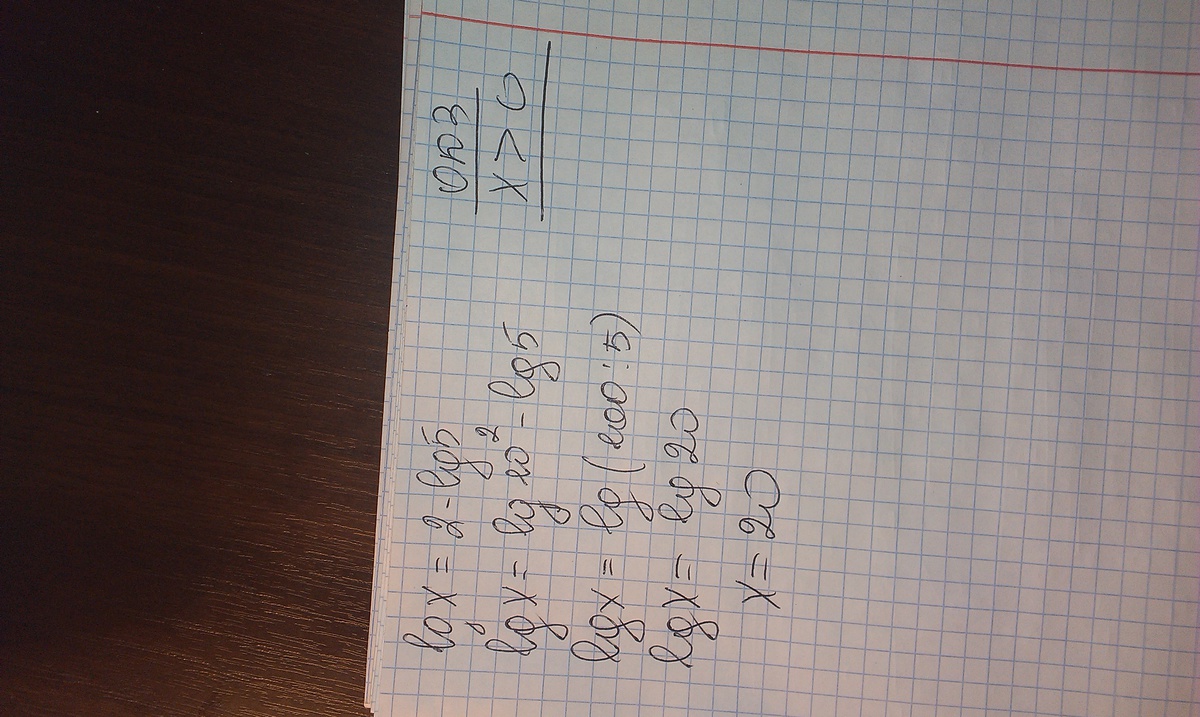 lg x = 2 - lg 5
lg x = lg 10² - lg 5
lg x = lg (100 : 5)
lg x = lg 20
x = 20
ОДЗ
x > 0